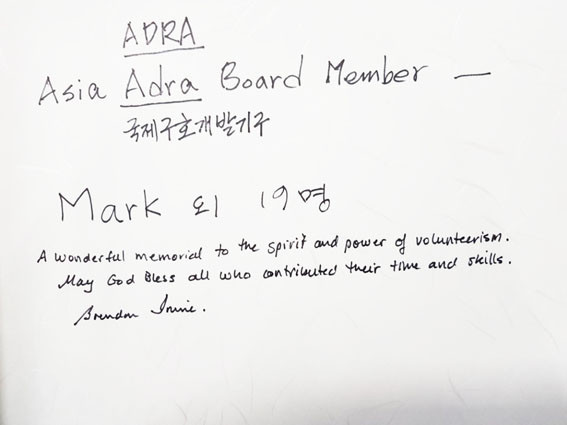 ADRA
Asia Adra Board Member —
국제구호개발기구
Mark 외 19명
A wonderful memorial to the spirit and power of volunteerism.
May God Bless all who contributed their time and skills.
Brendon Irvine.